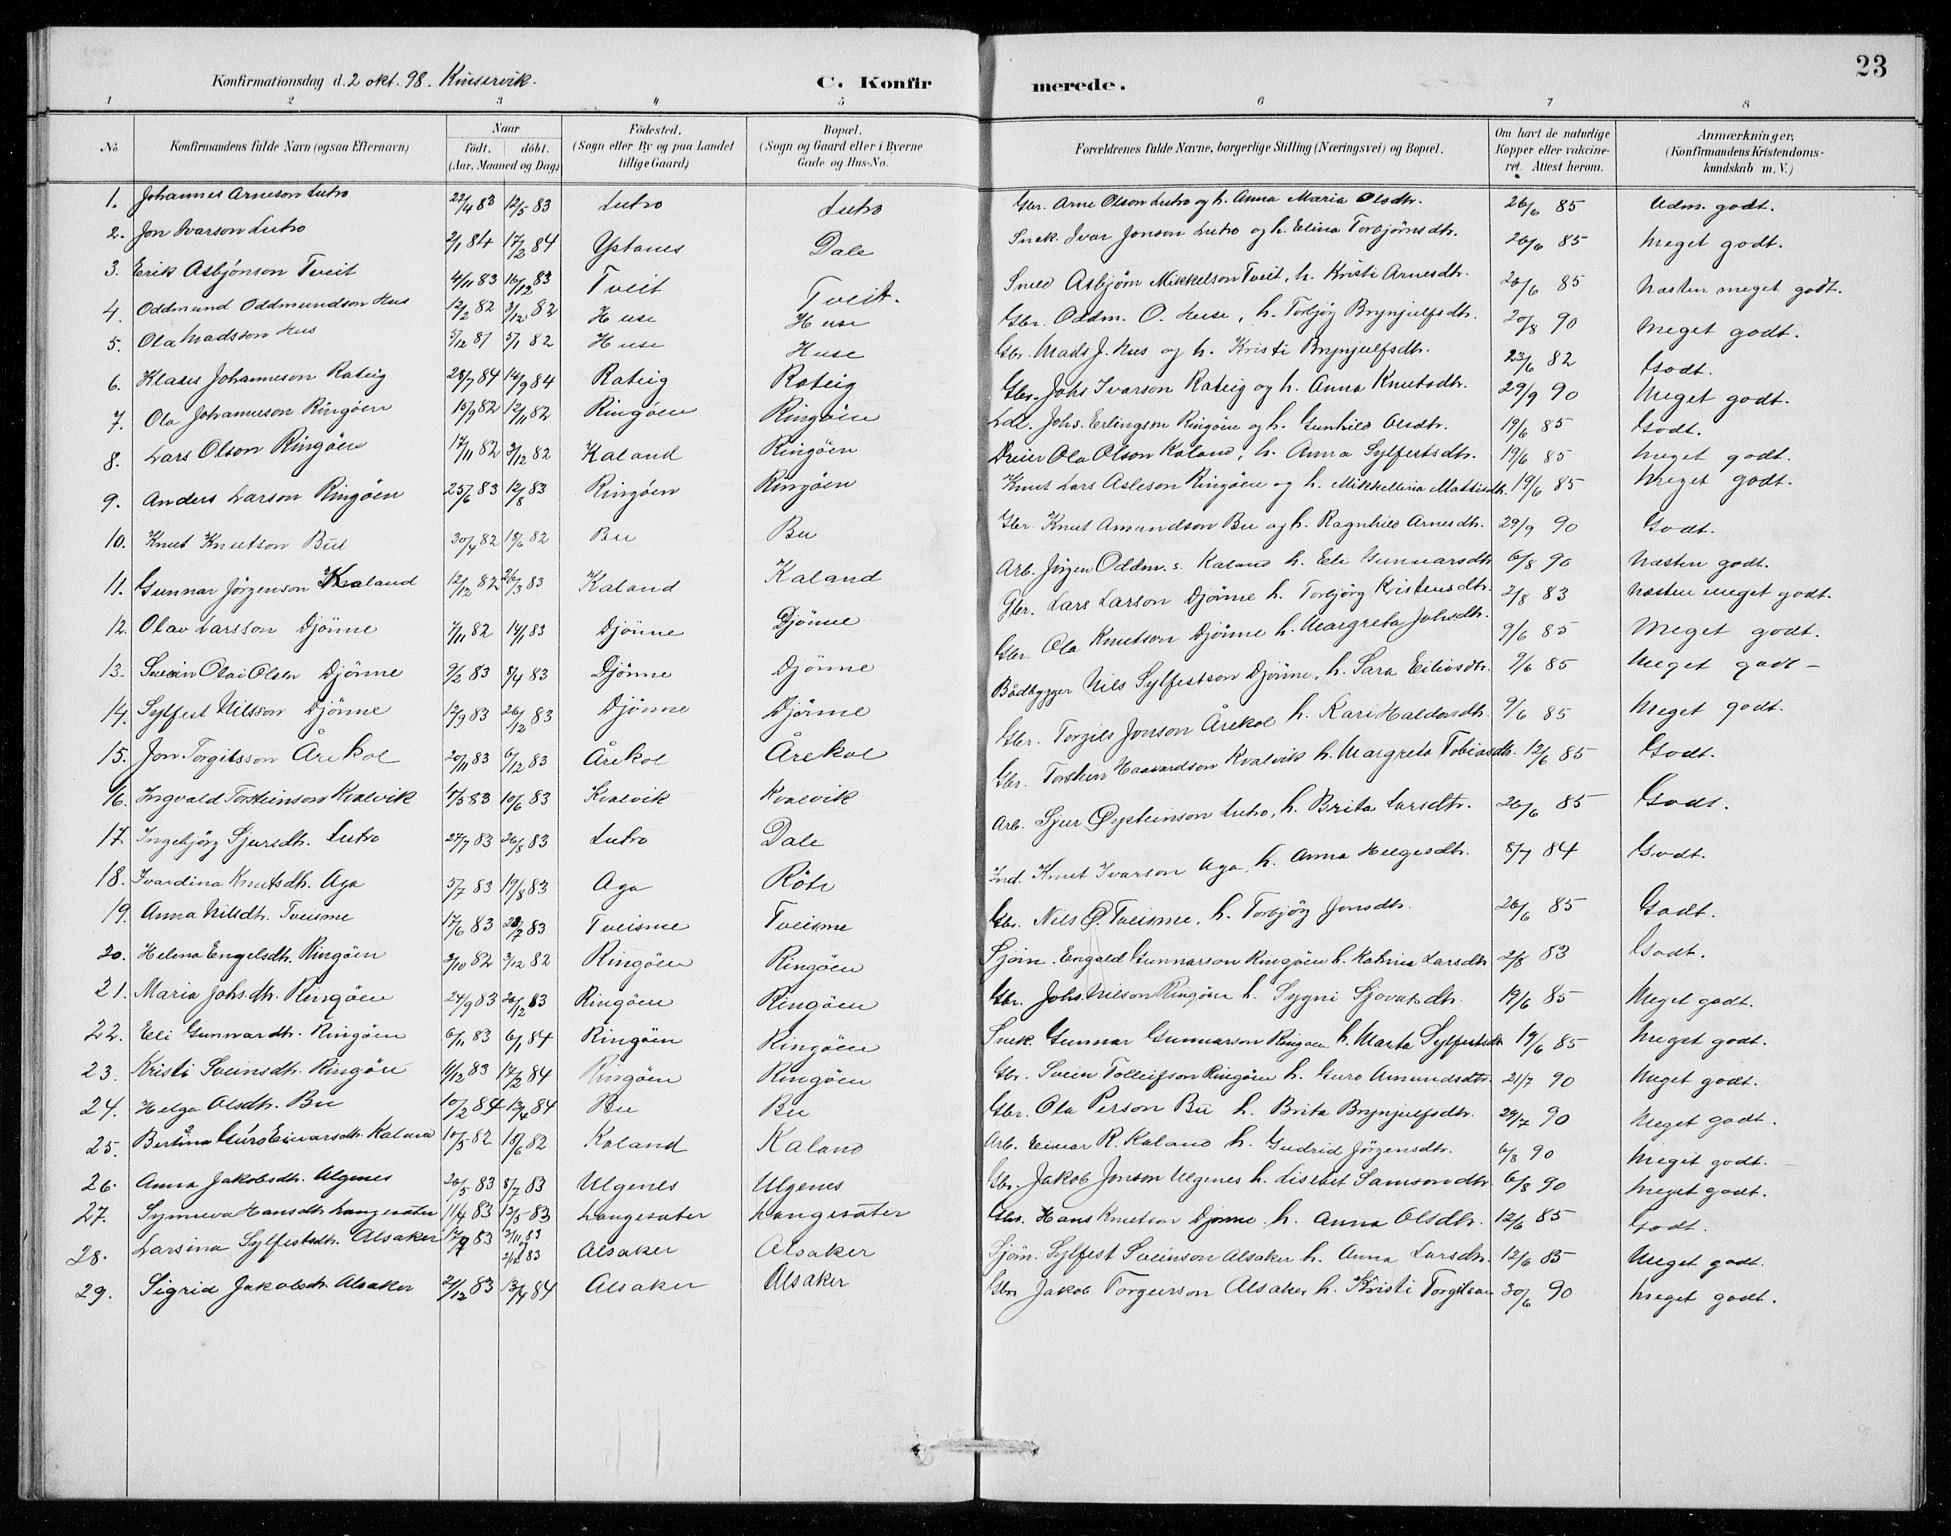 23
Konfirmationsdag d. 2 okt. 98. Kinservik.
C. Konfirmerede.
1 2 3 4 5 6 7 8
No Konfirmandens fulde Navn (ogsaa Efternavn) Naar født. døbt. (Aar, Maaned og Dag) Fødested. (Sogn eller By og paa Landet tillige Gaard) Bopæl. (Sogn og Gaard eller i Byerne Gade og Hus-No. Forældrenes fulde Navne, borgerlige Stilling (Næringsvei) og Bopæl. Om havt de naturlige Kopper eller vakcineret. Attest herom. Anmærkninger. (Konfirmandens Kristendomskundskab m. V.)
1. Johannes Arneson Lutro 22/4 83 12/5 83 Lutro Lutro Gbr. Arne Olson Lutro og h. Anna Maria Olsdtr. 26/6 85 Udm. godt.
2. Jon Ivarson Lutro 2/1 84 17/2 84 Ystanes Dale Snek. Ivar Jonson Lutro og h. Elina Torbjørnsdtr. 26/6 85 Meget godt.
3. Erik Asbjönson Tveit 4/11 83 16/12 83 Tveit Tveit. Sned Asbjørn Mikkelson Tveit, h. Kristi Arnesdtr. 26/6 85 Næsten meget godt.
4. Oddmund Oddmundson Hus 12/2 82 3/12 82 Huse Huse Gbr. Oddm. O. Huse, h. Torbjøg Brynjulfsdtr. 20/8 90 Meget godt.
5. Ola Madsson Hus 5/12 81 5/1 82 Huse Huse Gbr. Mads J. Hus og h. Kristi Brynjulfsdtr. 23/6 82 Godt.
6. Klaus Johanneson Rateig 28/7 84 14/9 84 Rateig Rateig Gbr. Johs Ivarson Rateig og h. Anna Knutsdtr. 29/9 90 Meget godt.
7. Ola Johanneson Ringöen 15/9 82 12/11 82 Ringöen Ringöen Johs. Erlingson Ringöen og h. Gunhild Olsdtr. 19/6 85 Godt.
8. Lars Olson Ringöen 17/11 82 3/12 82 Kaland Ringöen Dreier Ola Olson Kaland, h. Anna Sylfestsdtr. 19/6 85 Meget godt.
9. Anders Larson Ringöen 25/6 83 12/8 83 Ringöen Ringöen Knut Lars Asleson Ringöen og h. Mikkelina Mattisdtr. 19/6 85 Meget godt.
10. Knut Knutson Bu 30/4 82 18/6 82 Bu Bu Gbr. Knut Amundson Bu og h. Ragnhild Arnesdtr. 29/9 90 Godt.
11. Gunnar Jörgenson Kaland 12/12 82 26/3 83 Kaland Kaland Arb. Jörgen Oddm. s. Kaland h. Eli Gunnarsdtr 6/8 90 Næsten godt.
12. Olav Larsson Djönne 7/11 82 14/1 83 Djönne Djönne Gbr. Lars Larson Djönne h. Torbjörg Kristensdtr. 2/8 83 Næsten meget godt.
13. Svein Olai Olsen Djönne 9/2 83 8/4 83 Djönne Djönne Gbr. Ola Knutson Djönne h. Margreta Johsdtr. 9/6 85 Meget godt.
14. Sylfest Nilsson Djönne 12/9 83 26/12 83 Djönne Djönne Bådbygger Nils Sylfestson Djönne, h. Sara Eilivsdtr. 9/6 85 Meget godt -
15. Jon Torgilsson Årekol 20/11 83 6/12 83 Årekol Årekol Gbr. Torgils Jonson Årekol h. Kari Haldorsdtr. 9/6 85 Meget godt.
16. Ingvald Torsteinson Kvalvik 4/5 83 10/6 83 Kvalvik Kvalvik Gbr. Torstein Haavardson Kvalvik h. Margreta Tobiasdtr. 12/6 85 Godt.
17. Ingebjörg Sjursdtr. Lutro 27/7 83 26/8 83 Lutro Dale Arb. Sjur Øysteinson Lutro, h. Brita Larsdtr. 26/6 85 Godt.
18. Ivardina Knutsdtr. Aga 5/7 83 19/8 83 Aga Röte Ind. Knut Ivarson Aga, h. Anna Helgesdtr. 8/7 84 Godt.
19. Anna Nilsdtr. Tveisme 17/6 83 22/7 83 Tveisme Tveisme Gbr. Nils Ø. Tveisme, h. Torbjög Jonsdtr. 26/6 85 Godt.
20. Helena Engelsdtr. Ringöen 3/10 82 3/12 82 Ringöen Ringöen Sjöm. Engald Gunnarson Ringöen h. Katrina Larsdtr 2/8 83 Godt.
21. Maria Johsdtr. Ringöen 24/9 83 26/12 83 Ringöen Ringöen Gbr. Johs. Nilson Ringöen h. Sygni Sjovatsdtr. 19/6 85 Meget godt.
22. Eli Gunnardtr. Ringöen 6/11 83 6/1 84 Ringöen Ringöen Snek. Gunnar Gunnarson Ringöen h. Marta Sylfestsdtr 19/6 85 Meget godt.
23. Kristi Sveinsdtr. Ringöen 11/12 83 17/2 84 Ringöen Ringöen Gbr. Svein Tolleifson Ringöen h. Guro Amundsdtr. 21/7 90 Meget godt.
24. Helga Olsdtr. Bu 10/2 84 13/4 84 Bu Bu Gbr. Ola Person Bu h. Brita Brynjulfsdtr. 29/7 90 Meget godt.
25. Bertina Guro Einarsdtr. Kaland 10/5 82 18/6 82 Kaland Kaland Arb. Einar R. Kaland h. Gudrid Jörgensdtr. 6/8 90 Meget godt.
26. Anna Jakobsdtr. Ulgenes 26/5 83 8/7 83 Ulgenes Ulgenes Gbr. Jakob Jonson Ulgenes h. Lisebet Samsonsdtr 6/8 90 Meget godt.
27. Synneva Hansdtr. Langesæter 11/4 83 13/5 83 Langesæter Langesæter Gbr. Hans Knutson Djönne h. Anna Olsdtr. 12/6 85 Godt.
28. Larsina Sylfestsdtr. Alsaker 17/9 83 2/12 83 Alsaker Alsaker Sjöm. Sylfest Sveinson Alsaker h. Anna Larsdtr. 12/6 85 Meget godt.
29. Sigrid Jakobsdtr. Alsaker 21/12 83 13/4 84 Alsaker Alsaker Gbr Jakob Torgeirson Alsaker h. Kristi Torgilson 30/6 90 Meget godt.